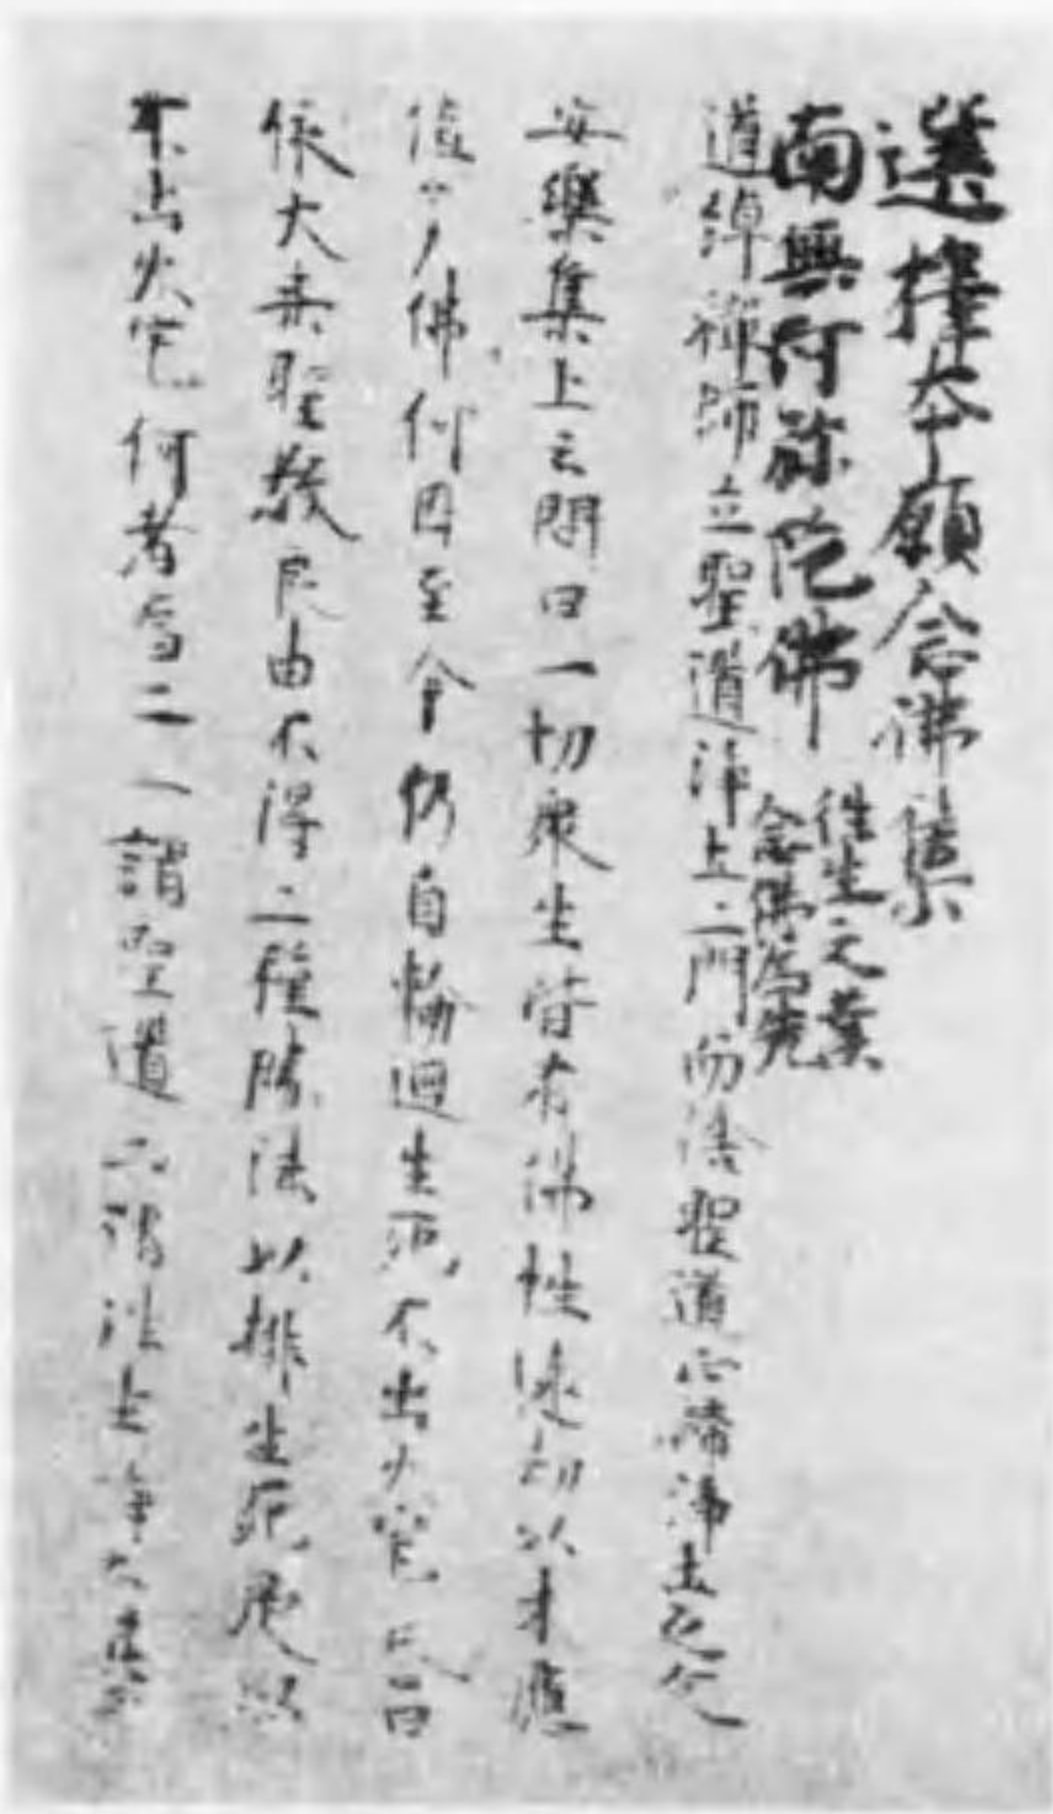 選擇本願念佛集
南無阿弥陀佛
往生之業
念佛為先
道綽禪師立聖道淨土二門而捨聖道正歸淨土之文
安樂集上云問曰一切衆生皆有佛性遠劫以来應
値多佛何因至今仍自輪迴生死不出火宅答曰
依大乗聖教良由不得二種勝法以排生死是以
不出火宅何者為二一謂聖道二謂往生淨土